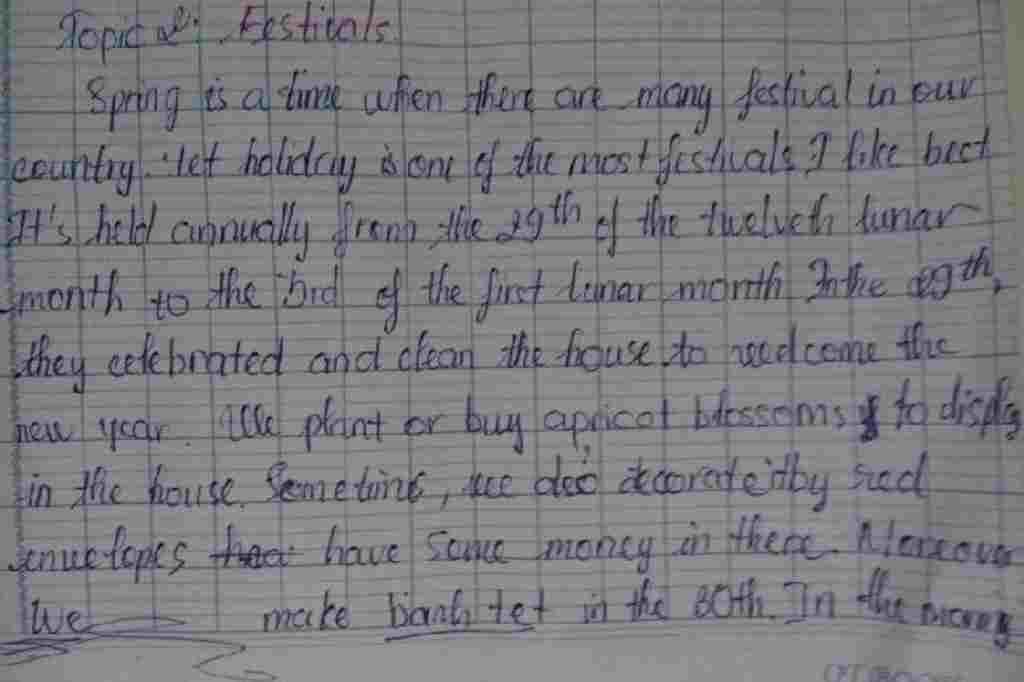 Topic 2: Festivals
Spring is a time when there are many festival in our
country. Tet holiday is one of the most festivals I like best
It's held annually from the 29th of the twelveth lunar
month to the 3rd of the first lunar month In the 29th,
they celebrated and clean the house to welcome the
new year. We plant or buy apricot blossoms to display
in the house. Sometime, we decorate it by red
envelopes have some money in there. Moreover
We make banh tet in the 30th. In the